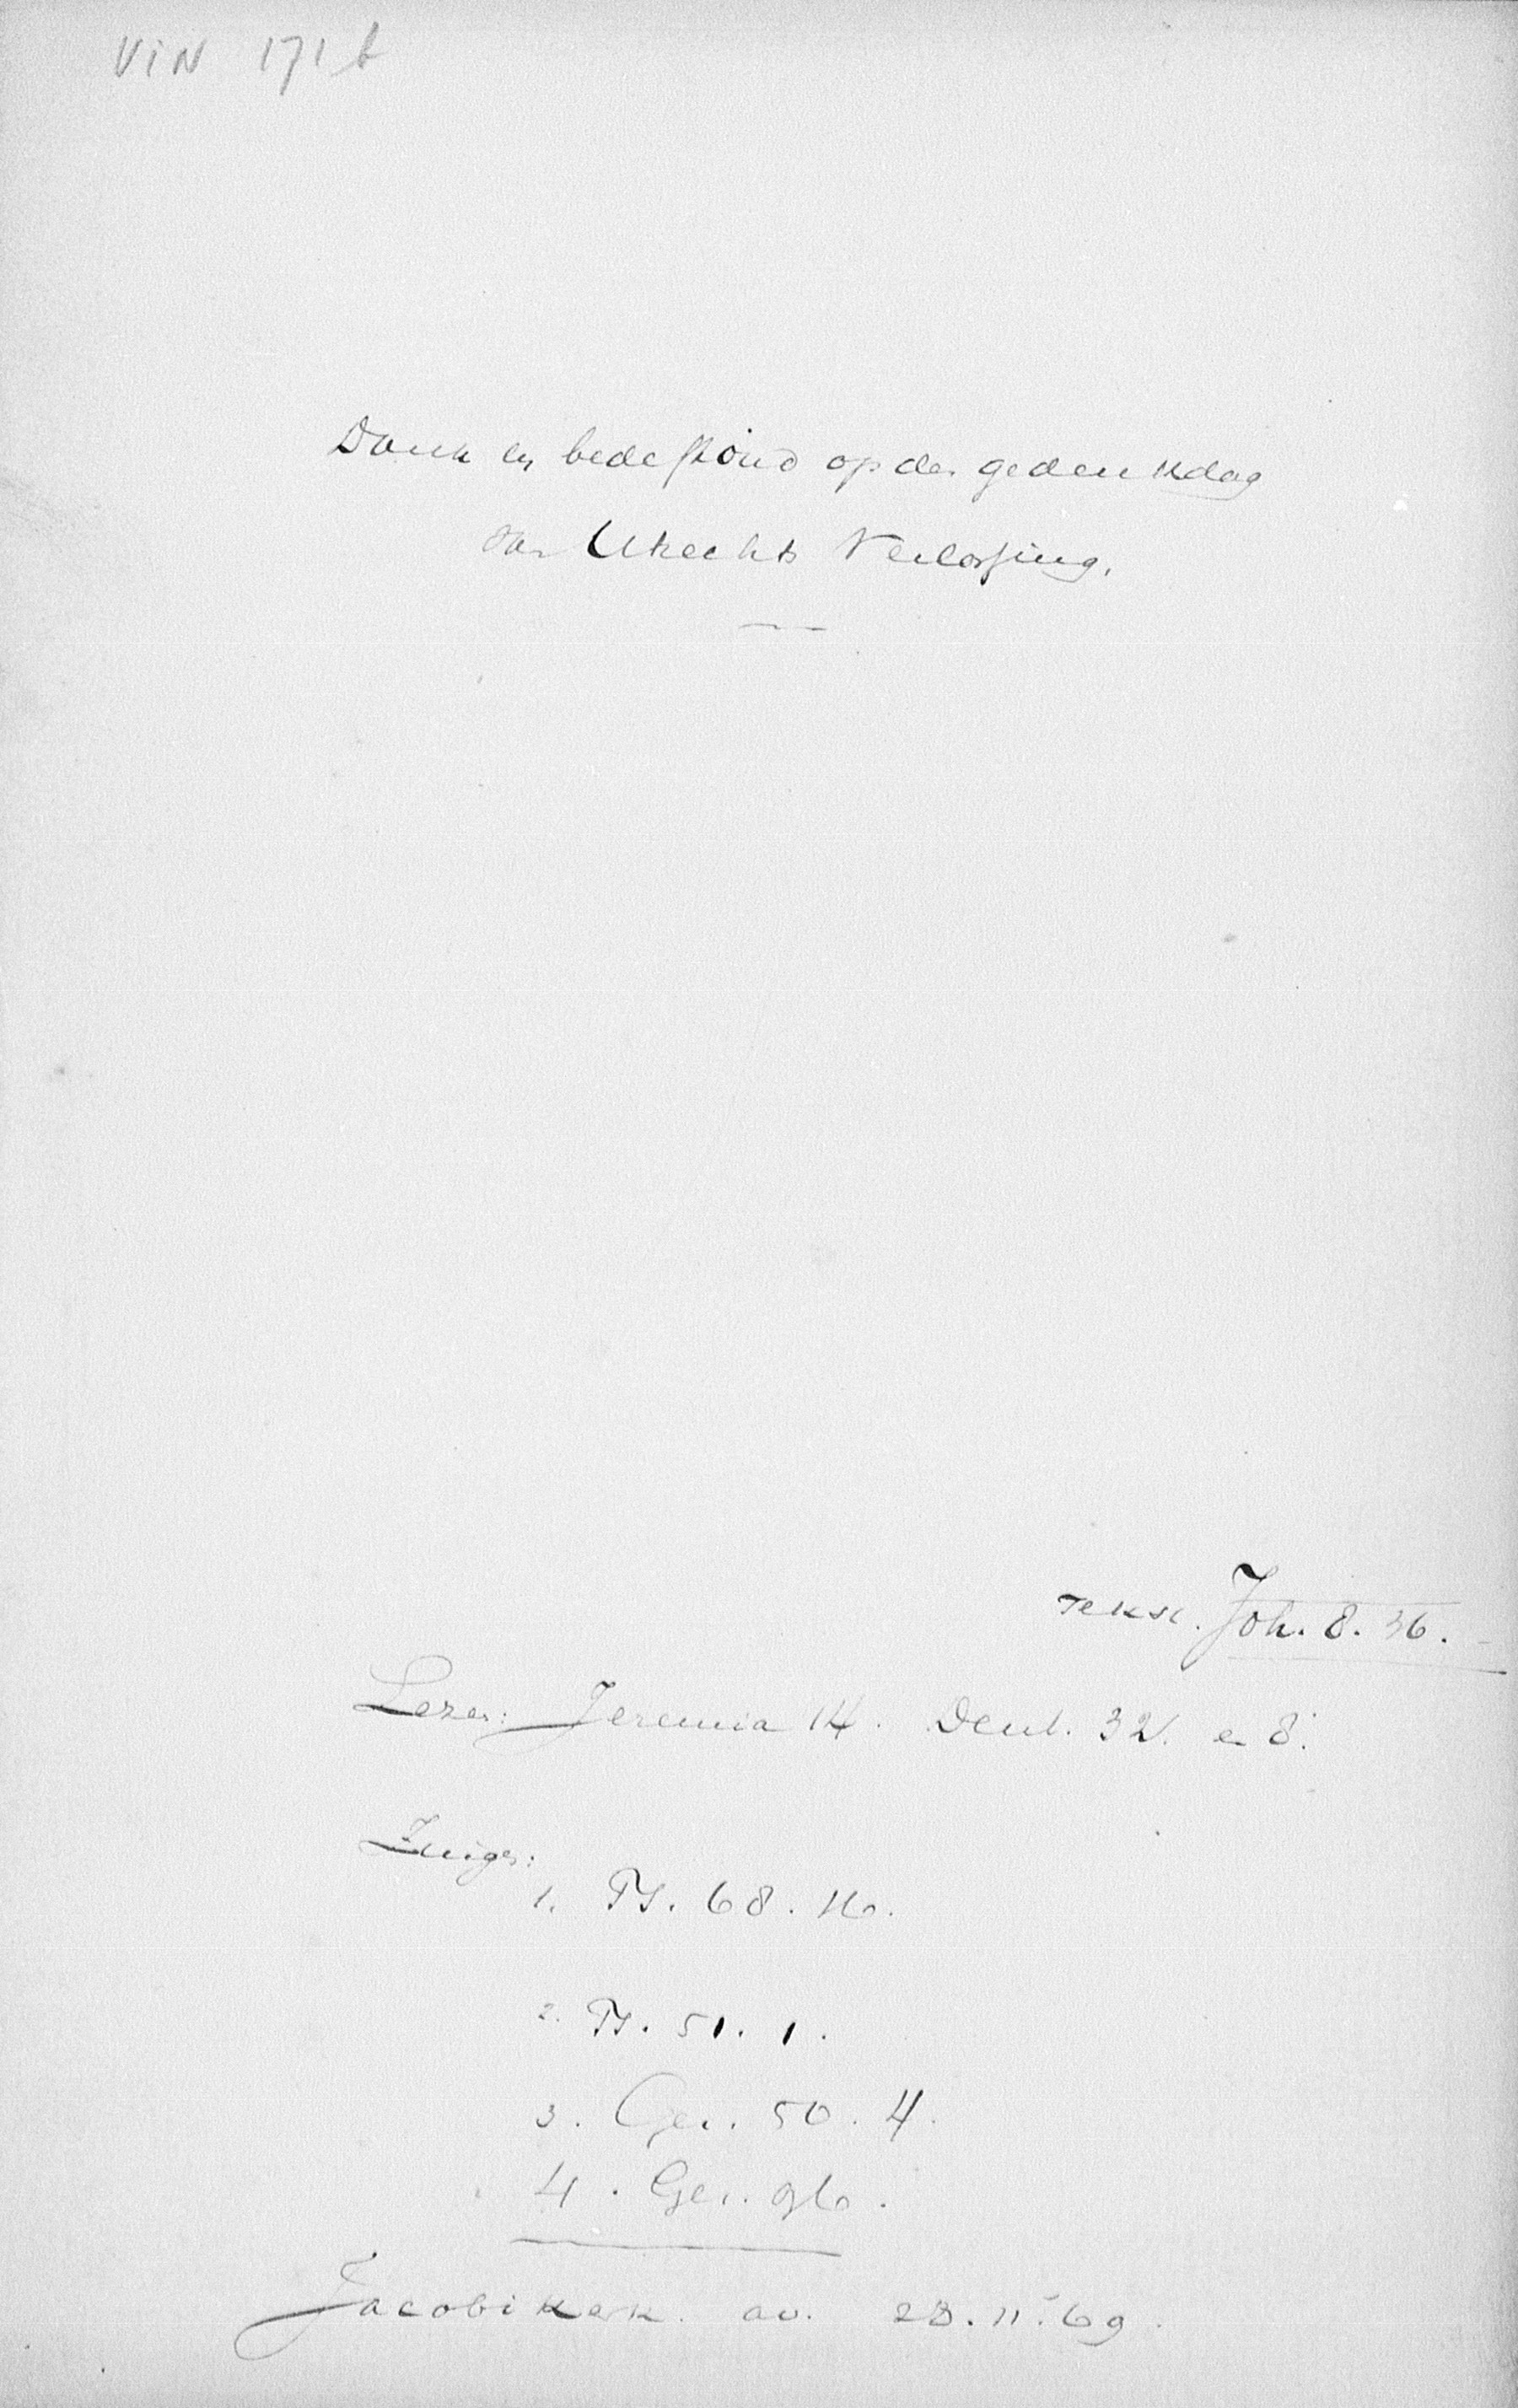 VIN 171b
Dank en bedestond op den gedenkdag
van Utrechts Verlossing.
Tekst. Joh. 8. 36.
Lezen: Jeremia 14. Deut. 32. en 8.
Zingen:
1. Ps. 68. 16.
2. Ps. 51. 1.
3. Gez. 50. 4.
4. Gez. 96.
Jacobikerk. av. 28.11.69.